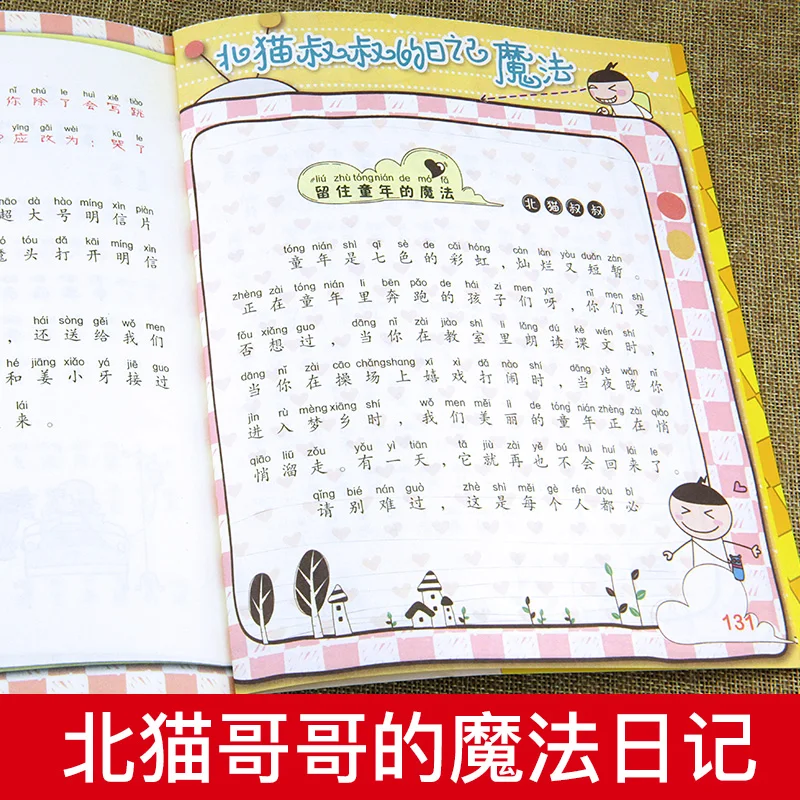 nǐ chú le huì xiě tiào
你除了会写跳
yīng gāi wéi kū le
应改为：哭了
chāo dà hào míng xìn piàn
超大号明信片
tóu dǎ kāi míng xìn
头打开明信
hái sòng gěi wǒ men
，还送给我们
hé jiāng xiǎo yá jiē guo
和姜小牙接过
lái
来。
北猫叔叔的日记魔法
liú zhù tóng nián de mó fǎ
留住童年的魔法
北猫叔叔
tóng nián shì qī sè de cǎi hóng càn làn yòu duǎn zàn
童年是七色的彩虹，灿烂又短暂。
zhèng zài tóng nián lǐ bēn pǎo de hái zi men ya nǐ men shì
正在童年里奔跑的孩子们呀，你们是
fǒu xiǎng guo dāng nǐ zài jiào shì li lǎng dú kè wén shí
否想过，当你在教室里朗读课文时，
dāng nǐ zài cāo chǎng shang xī xì dǎ nào shí dāng yè wǎn nǐ
当你在操场上嬉戏打闹时，当夜晚你
jìn rù mèng xiāng shí wǒ men měi lì de tóng nián zhèng zài qiāo
进入梦乡时，我们美丽的童年正在悄
qiāo liū zǒu yǒu yì tiān tā jiù zài yě bú huì huí lái le
悄溜走。有一天，它就再也不会回来了。
qǐng bié nán guò zhè shì měi gè rén dōu bì
请别难过，这是每个人都必
131
北猫哥哥的魔法日记